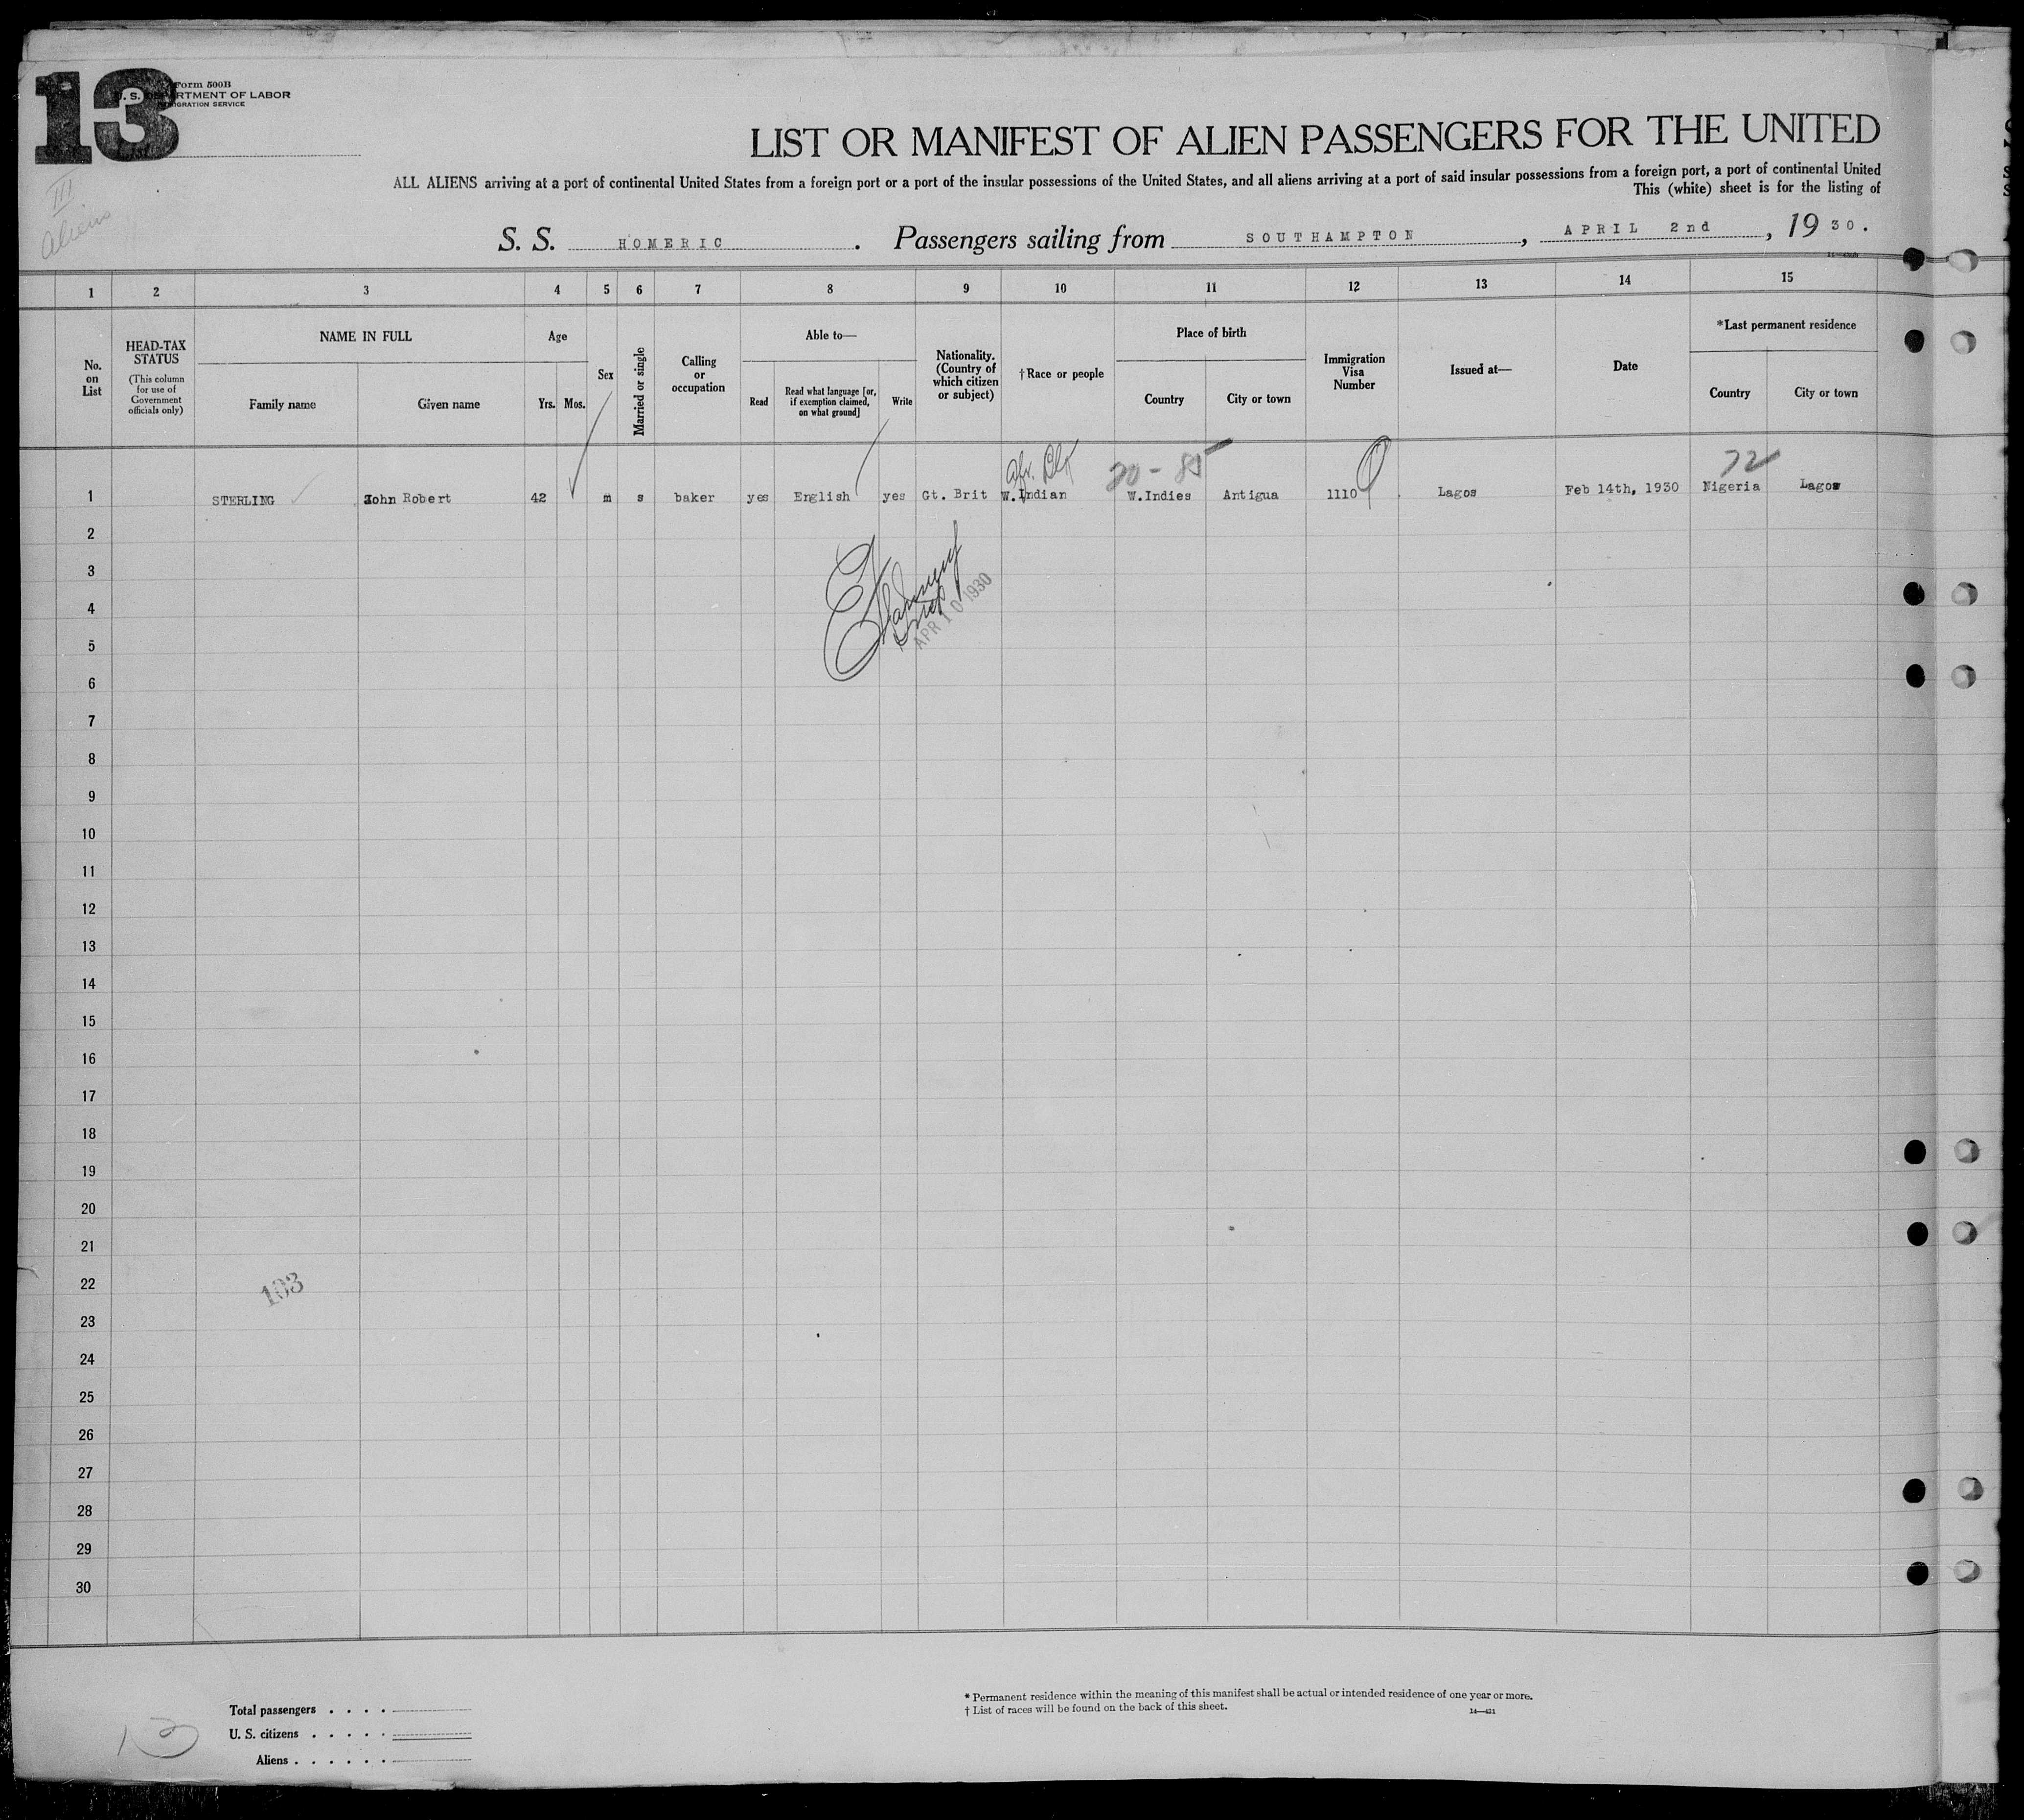 13
Form 500B
U. S. DEPARTMENT OF LABOR
IMMIGRATION SERVICE
III
Aliens
LIST OR MANIFEST OF ALIEN PASSENGERS FOR THE UNITED
ALL ALIENS arriving at a port of continental United States from a foreign port or a port of the insular possessions of the United States, and all aliens arriving at a port of said insular possessions from a foreign port, a port of continental United
This (white) sheet is for the listing of
S. S. HOMERIC. Passengers sailing from SOUTHAMPTON, APRIL 2nd, 19 30.
1 2 3 4 5 6 7 8 9 10 11 12 13 14 15
No. on List
HEAD-TAX STATUS
(This column for use of Government officials only)
NAME IN FULL
Family name Given name
Age
Yrs. Mos.
Sex
Married or single
Calling or occupation
Able to—
Read
Read what language [or, if exemption claimed, on what ground]
Write
Nationality. (Country of which citizen or subject)
†Race or people
Place of birth
Country City or town
Immigration Visa Number
Issued at—
Date
*Last permanent residence
Country City or town
Afr. Blk 20 - 85 72
1 STERLING John Robert 42 m s baker yes English yes Gt. Brit W.Indian W.Indies Antigua 1110 Lagos Feb 14th, 1930 Nigeria Lagos
2
3
4
APR 10 1930
5
6
7
8
9
10
11
12
13
14
15
16
17
18
19
20
21
22
103
23
24
25
26
27
28
29
30
* Permanent residence within the meaning of this manifest shall be actual or intended residence of one year or more.
† List of races will be found on the back of this sheet.
Total passengers . . . .
U. S. citizens . . . . .
Aliens . . . . . .